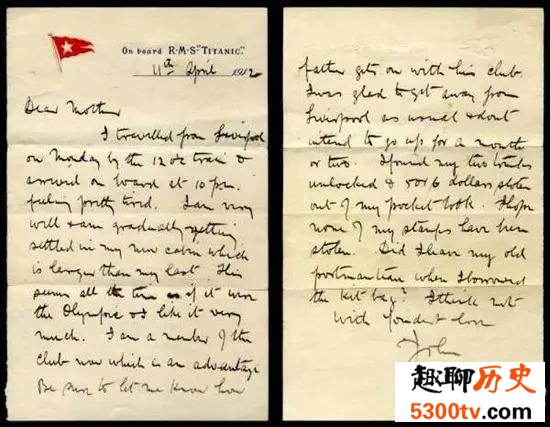 On board R·M·S. "TITANIC".
11th April 1912
Dear Mother
I travelled from Liverpool
on Monday by the 12 o'c train &
arrived on board at 10 pm.
feeling pretty tired. I am very
well & am gradually getting
settled in my new cabin which
is larger than my last. This
seems all the time as if it were
the Olympic & I like it very
much. I am a member of the
club now which is an advantage
Be sure to let me know how
father gets on with his club.
I was glad to get away from
Liverpool as usual & dont
intend to go up for a month
or two. I found my two trunks
unlocked & 5 or 6 dollars stolen
out of my pocket book. I hope
none of my stamps have been
stolen. Did I leave my old
portmanteau when I borrowed
the kit bag? I think not
With fondest love
John
趣聊历史
5300tv.com